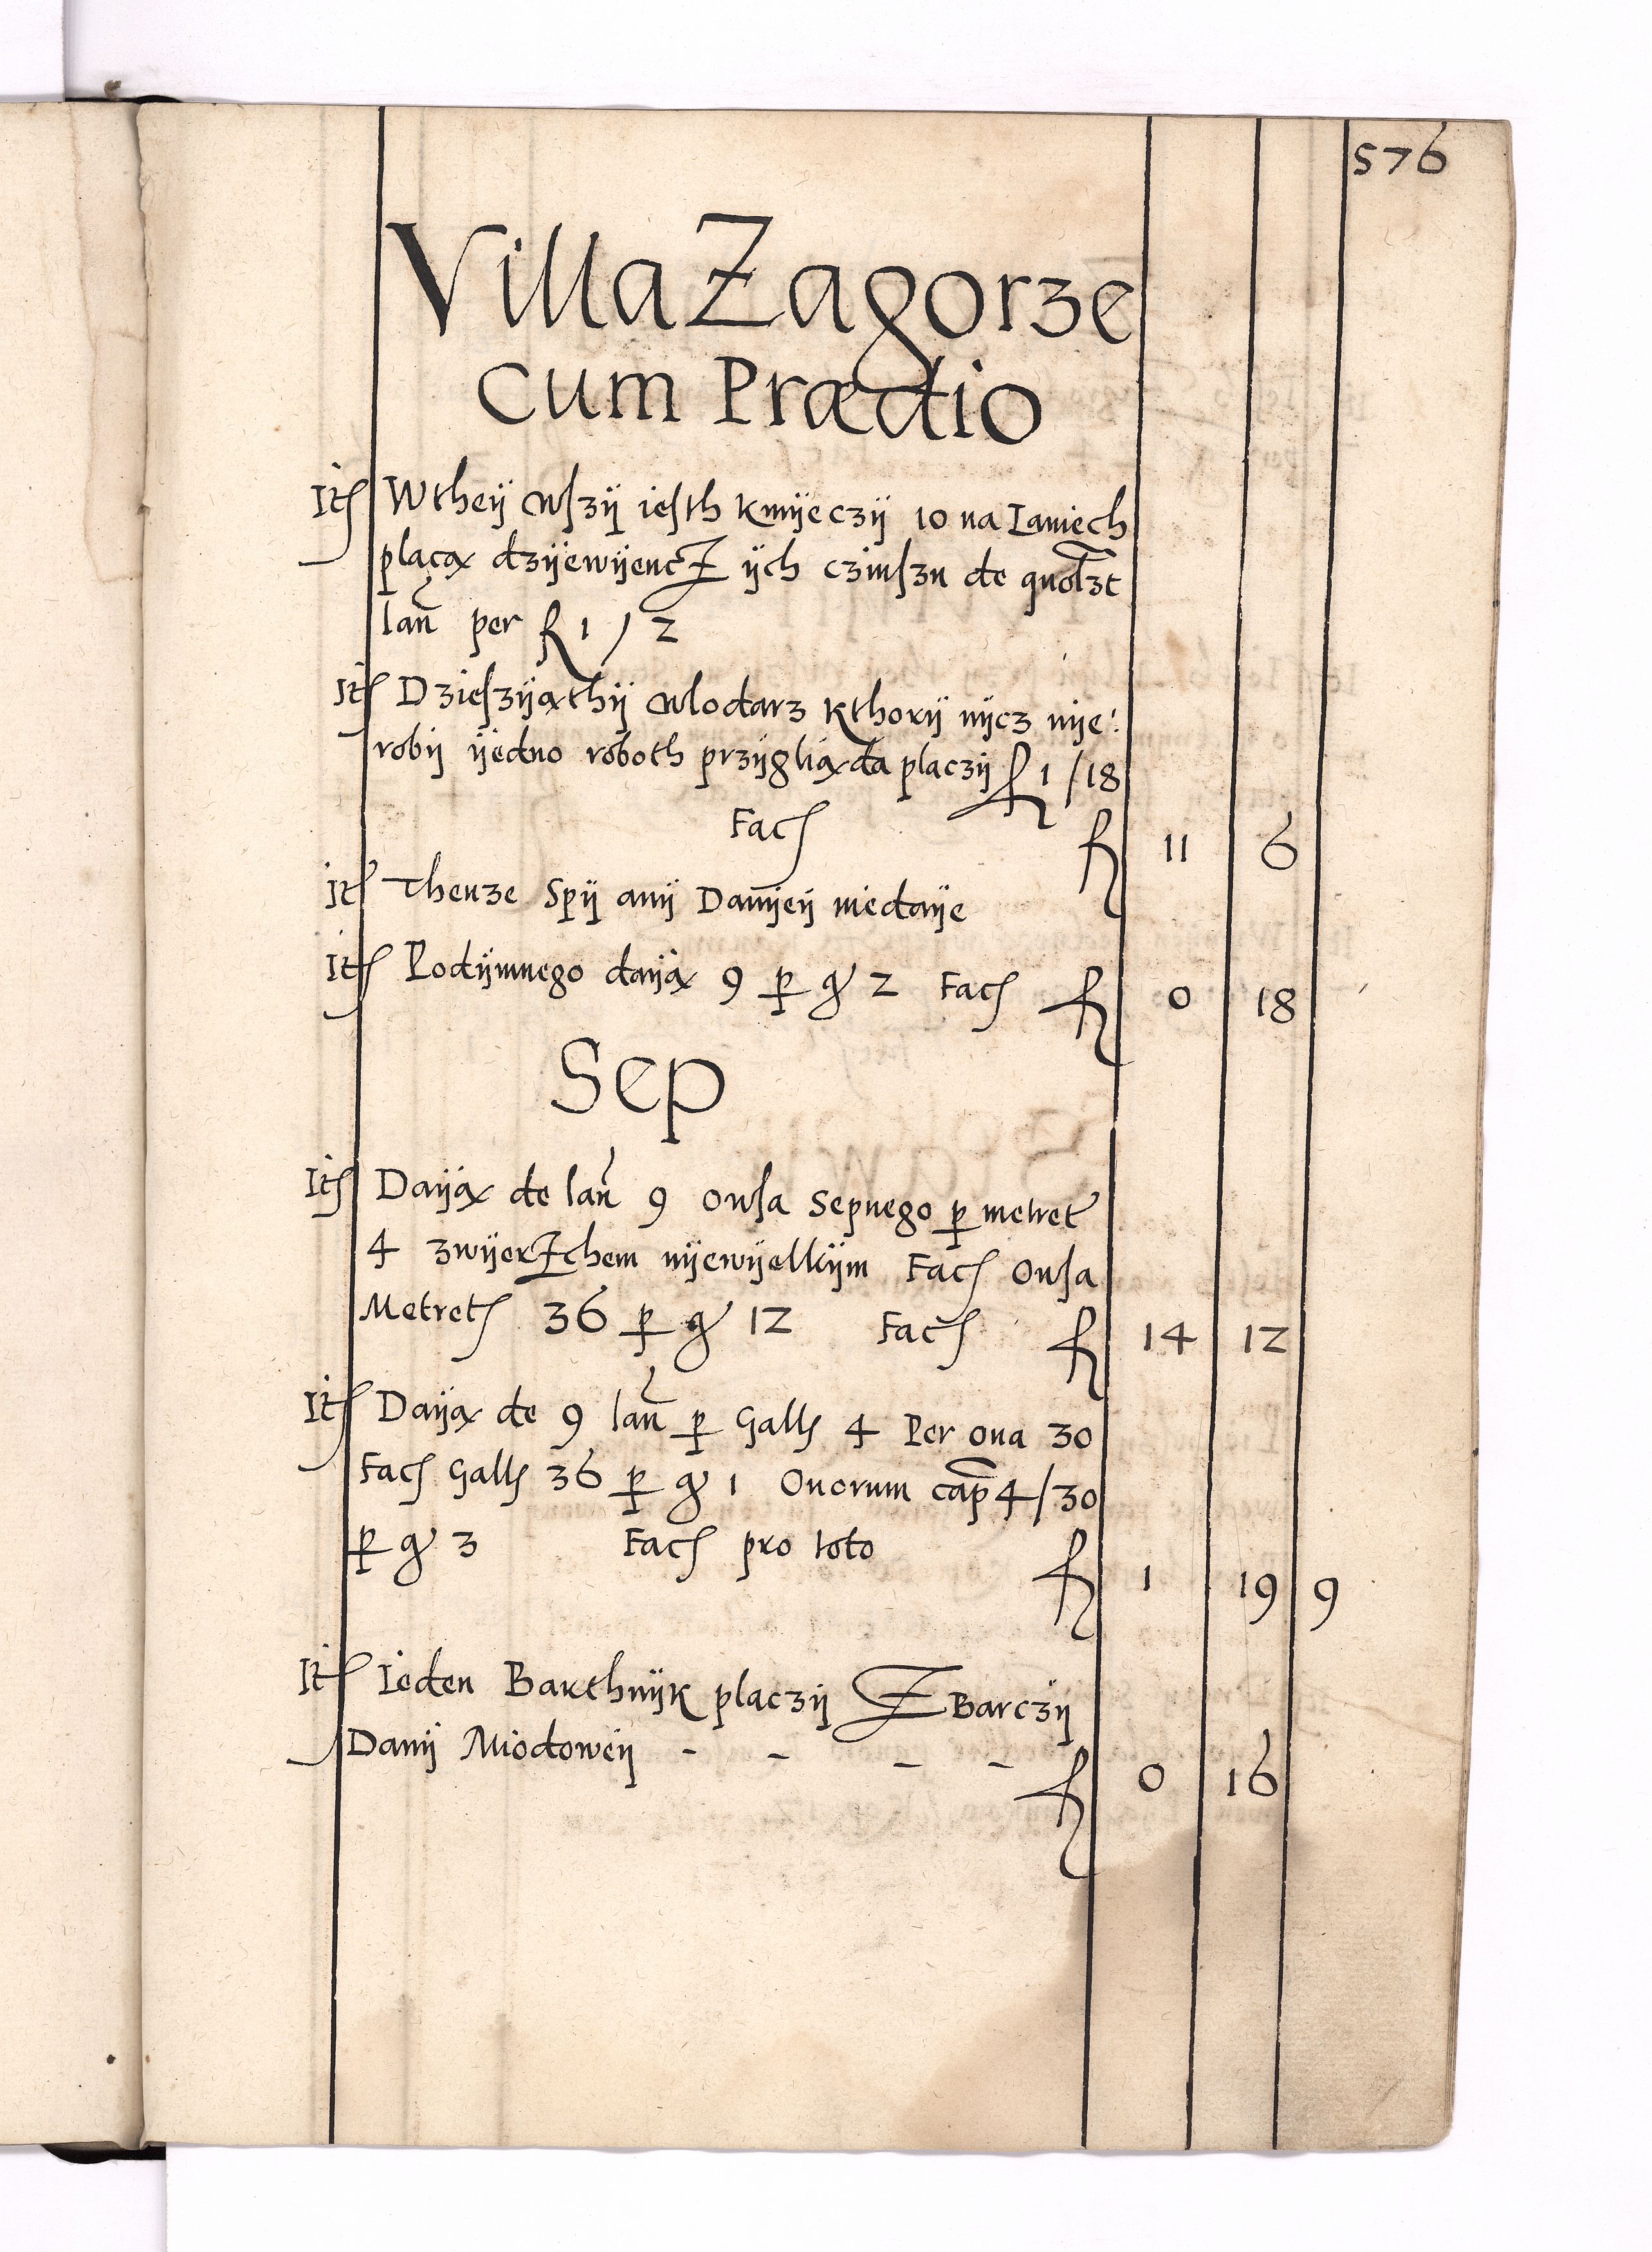 576
Villa Zagorze
cum Prædio
Itē Wtheÿ wſzÿ ieſth kmÿeczÿ 10 na Laniech
placą dzÿewÿencz ÿch czinſzu de quolzt
lan̄ per fl 1 / 2
Itē Dzieſzÿąthÿ wlodarz kthorÿ nÿcz nÿe:
robÿ ÿedno roboth przÿgląda placzÿ fl 1 / 18
Facͭ fl 11 6
Itē Thenze Spÿ anÿ Danÿeÿ niedaÿe
Itē Podÿmnego daÿą 9 p gͬ 2 Facͭ fl 0 18
Sep
Itē Daÿą de lan̄ 9 Owſa Sepnego p metret
4 zwÿerzchem nÿewÿelkÿm Facͭ Owſa
Metretͭ 36 p gͬ 12 Facͭ fl 14 12
Itē Daÿą de 9 lan̄ p Gallͭ 4 Per ova 30
Facͭ Gallͭ 36 p gͬ 1 Ovorum cap̄ 4/30
p gͬ 3 Facͭ pro toto fl 1 19 9
Itē Ieden Barthnÿk placzÿ Z Barczÿ
Danÿ Miodoweÿ - - - - fl 0 16